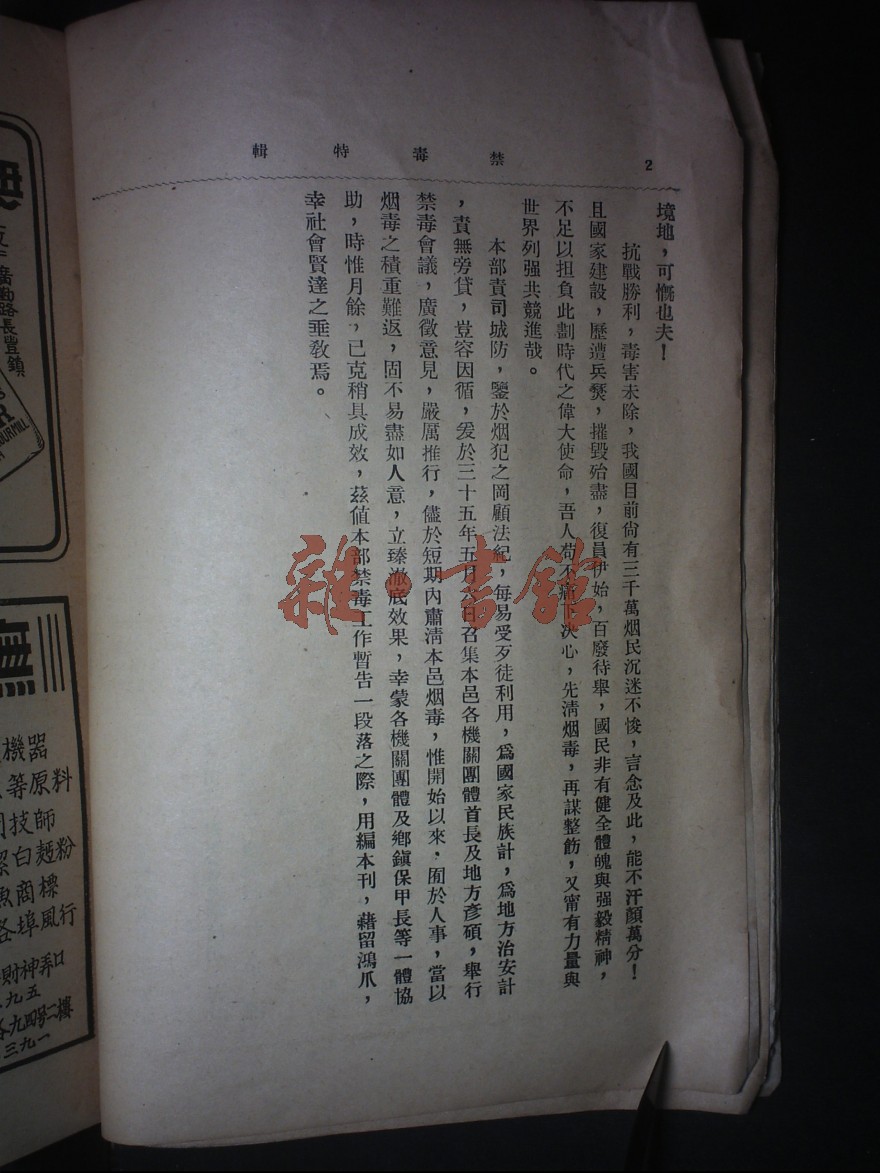 2
禁毒特輯
境地，可慨也夫！
抗戰勝利，毒害未除，我國目前尙有三千萬烟民沉迷不悛，言念及此，能不汗顏萬分！
且國家建設，歷遭兵燹，摧毀殆盡，復員伊始，百廢待舉，國民非有健全體魄與强毅精神，
不足以担負此劃時代之偉大使命，吾人苟不痛下决心，先淸烟毒，再謀整飭，又甯有力量與
世界列强共競進哉。
本部責司城防，鑒於烟犯之罔顧法紀，每易受歹徒利用，爲國家民族計，爲地方治安計
，責無旁貸，豈容因循，爰於三十五年五月六日召集本邑各機關團體首長及地方彥碩，舉行
禁毒會議，廣徵意見，嚴厲推行，儘於短期內肅淸本邑烟毒，惟開始以來，囿於人事，當以
烟毒之積重難返，固不易盡如人意，立臻澈底效果，幸蒙各機關團體及鄉鎭保甲長等一體協
助，時惟月餘，已克稍具成效，茲値本部禁毒工作暫告一段落之際，用編本刊，藉留鴻爪，
幸社會賢達之垂敎焉。
雜·書館
廣勤路長豐鎮
機器
等原料
技師
潔白麵粉
魚商標
各埠風行
財神弄口
九五
九四號二樓
三九一